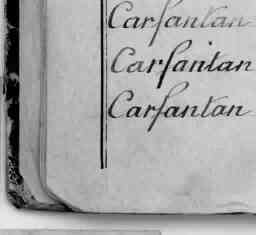 Carſantan
Carſantan
Carſantan